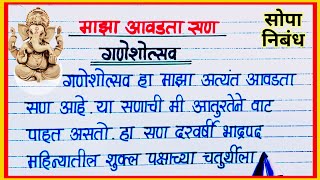 माझा आवडता सण
सोपा
निबंध
गणेशोत्सव
गणेशोत्सव हा माझा अत्यंत आवडता
सण आहे. या सणाची मी आतुरतेने वाट
पाहत असतो. हा सण दरवर्षी भाद्रपद
महिन्यातील शुक्ल पक्षाच्या चतुर्थीला